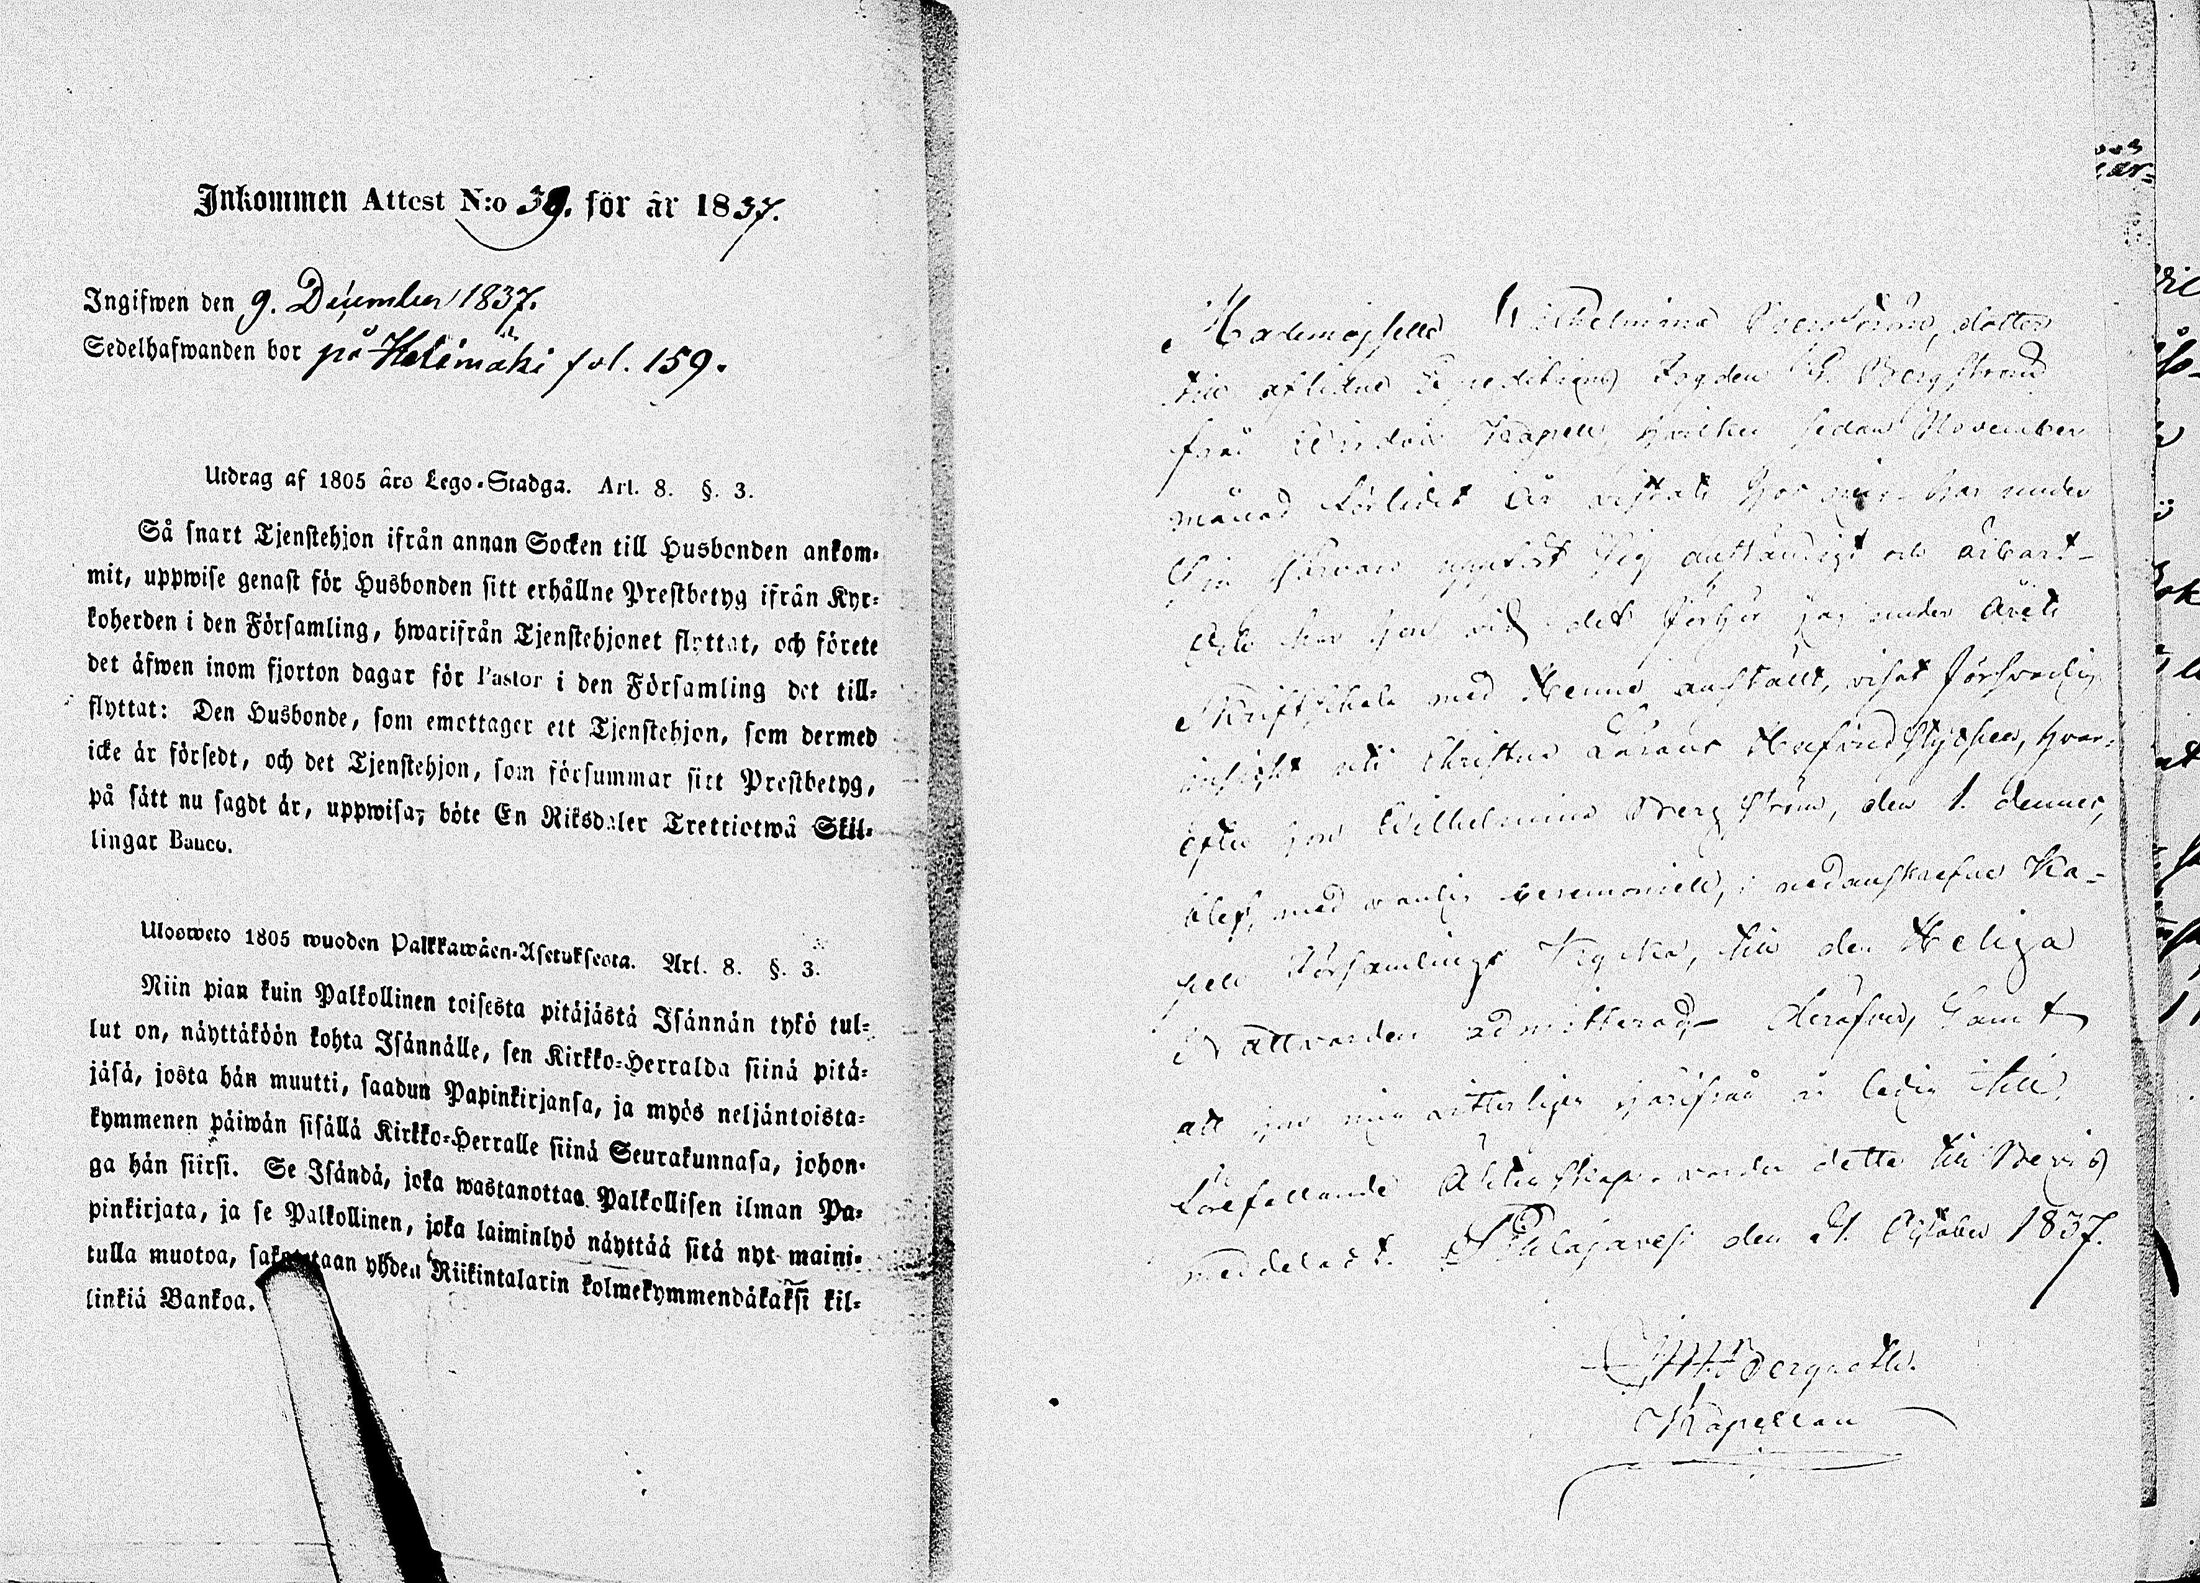 Inkommen Attest N:o 39. för år 1837.
Ingifwen den 9. December 1837.
Sedelhafwanden bor på Halimäki fol. 159.
Utdrag af 1805 års Lego-Stadga. Art. 8. §. 3.
Så snart Tjenstehjon ifrån annan Socken till Husbonden ankom-
mit, uppwise genast för Husbonden sitt erhållne Prestbetyg ifrån Kyr-
koherden i den Församling, hwarifrån Tjenstehjonet flyttat, och förete
det äfwen inom fjorton dagar för Pastor i den Församling det till-
flyttat: Den Husbonde, som emottager ett Tjenstehjon, som dermed
icke är försedt, och det Tjenstehjon, som försummar sitt Prestbetyg,
på sätt nu sagdt är, uppwisa, böte En Riksdaler Trettiotwå Skil-
lingar Banco.
Ulosweto 1805 wuoden Palkkawäen-Asetuksesta. Art. 8. §. 3.
Niin pian kuin Palkollinen toisesta pitäjästä Isännän tykö tul-
lut on, näyttäköön kohta Isännälle, sen Kirkko-Herralda siinä pitä-
jäsä, josta hän muutti, saadun Papinkirjansa, ja myös neljäntoista-
kymmenen päiwän sisällä Kirkko-Herralle siinä Seurakunnasa, johon-
ga hän siirsi. Se Isändä, joka wastanottaa Palkollisen ilman Pa-
pinkirjata, ja se Palkollinen, joka laiminlyö näyttää sitä nyt maini-
tulla muotoa, sakotetaan yhden Riikintalarin kolmekymmendäkaksi kil-
linkiä Bankoa.
Mademoiselle Wilhelmina Bergström, dotter
till aflidne Expeditions Fogden G. Bergström
från Wirdois Kapell, hvilken sedan November
månad förlidet År vistats hos mig har under
Sin härvaro uppfört Sig anständigt och ärbart
Och har hon vid det förhör jag under
Skriftskola med Henne anställt, visat försvarlig
insigt uti Christna Lärans Hufvudstycken, hvar-
efter hon Wilhelmina Bergström, den 1. dennes,
blef, med vanlig Ceremoniell, i nedanskrefne Ka-
pell Församlings Kyrka, till den Heliga
Nattvarden admitterad, Herafven, Samt
att hon mig härifrån är ledig till
förefallande Äktenskap, varder detta till Bevis
meddeladt. Pihlajavesi den 21. October 1837.
Bergroth.
Kapellan